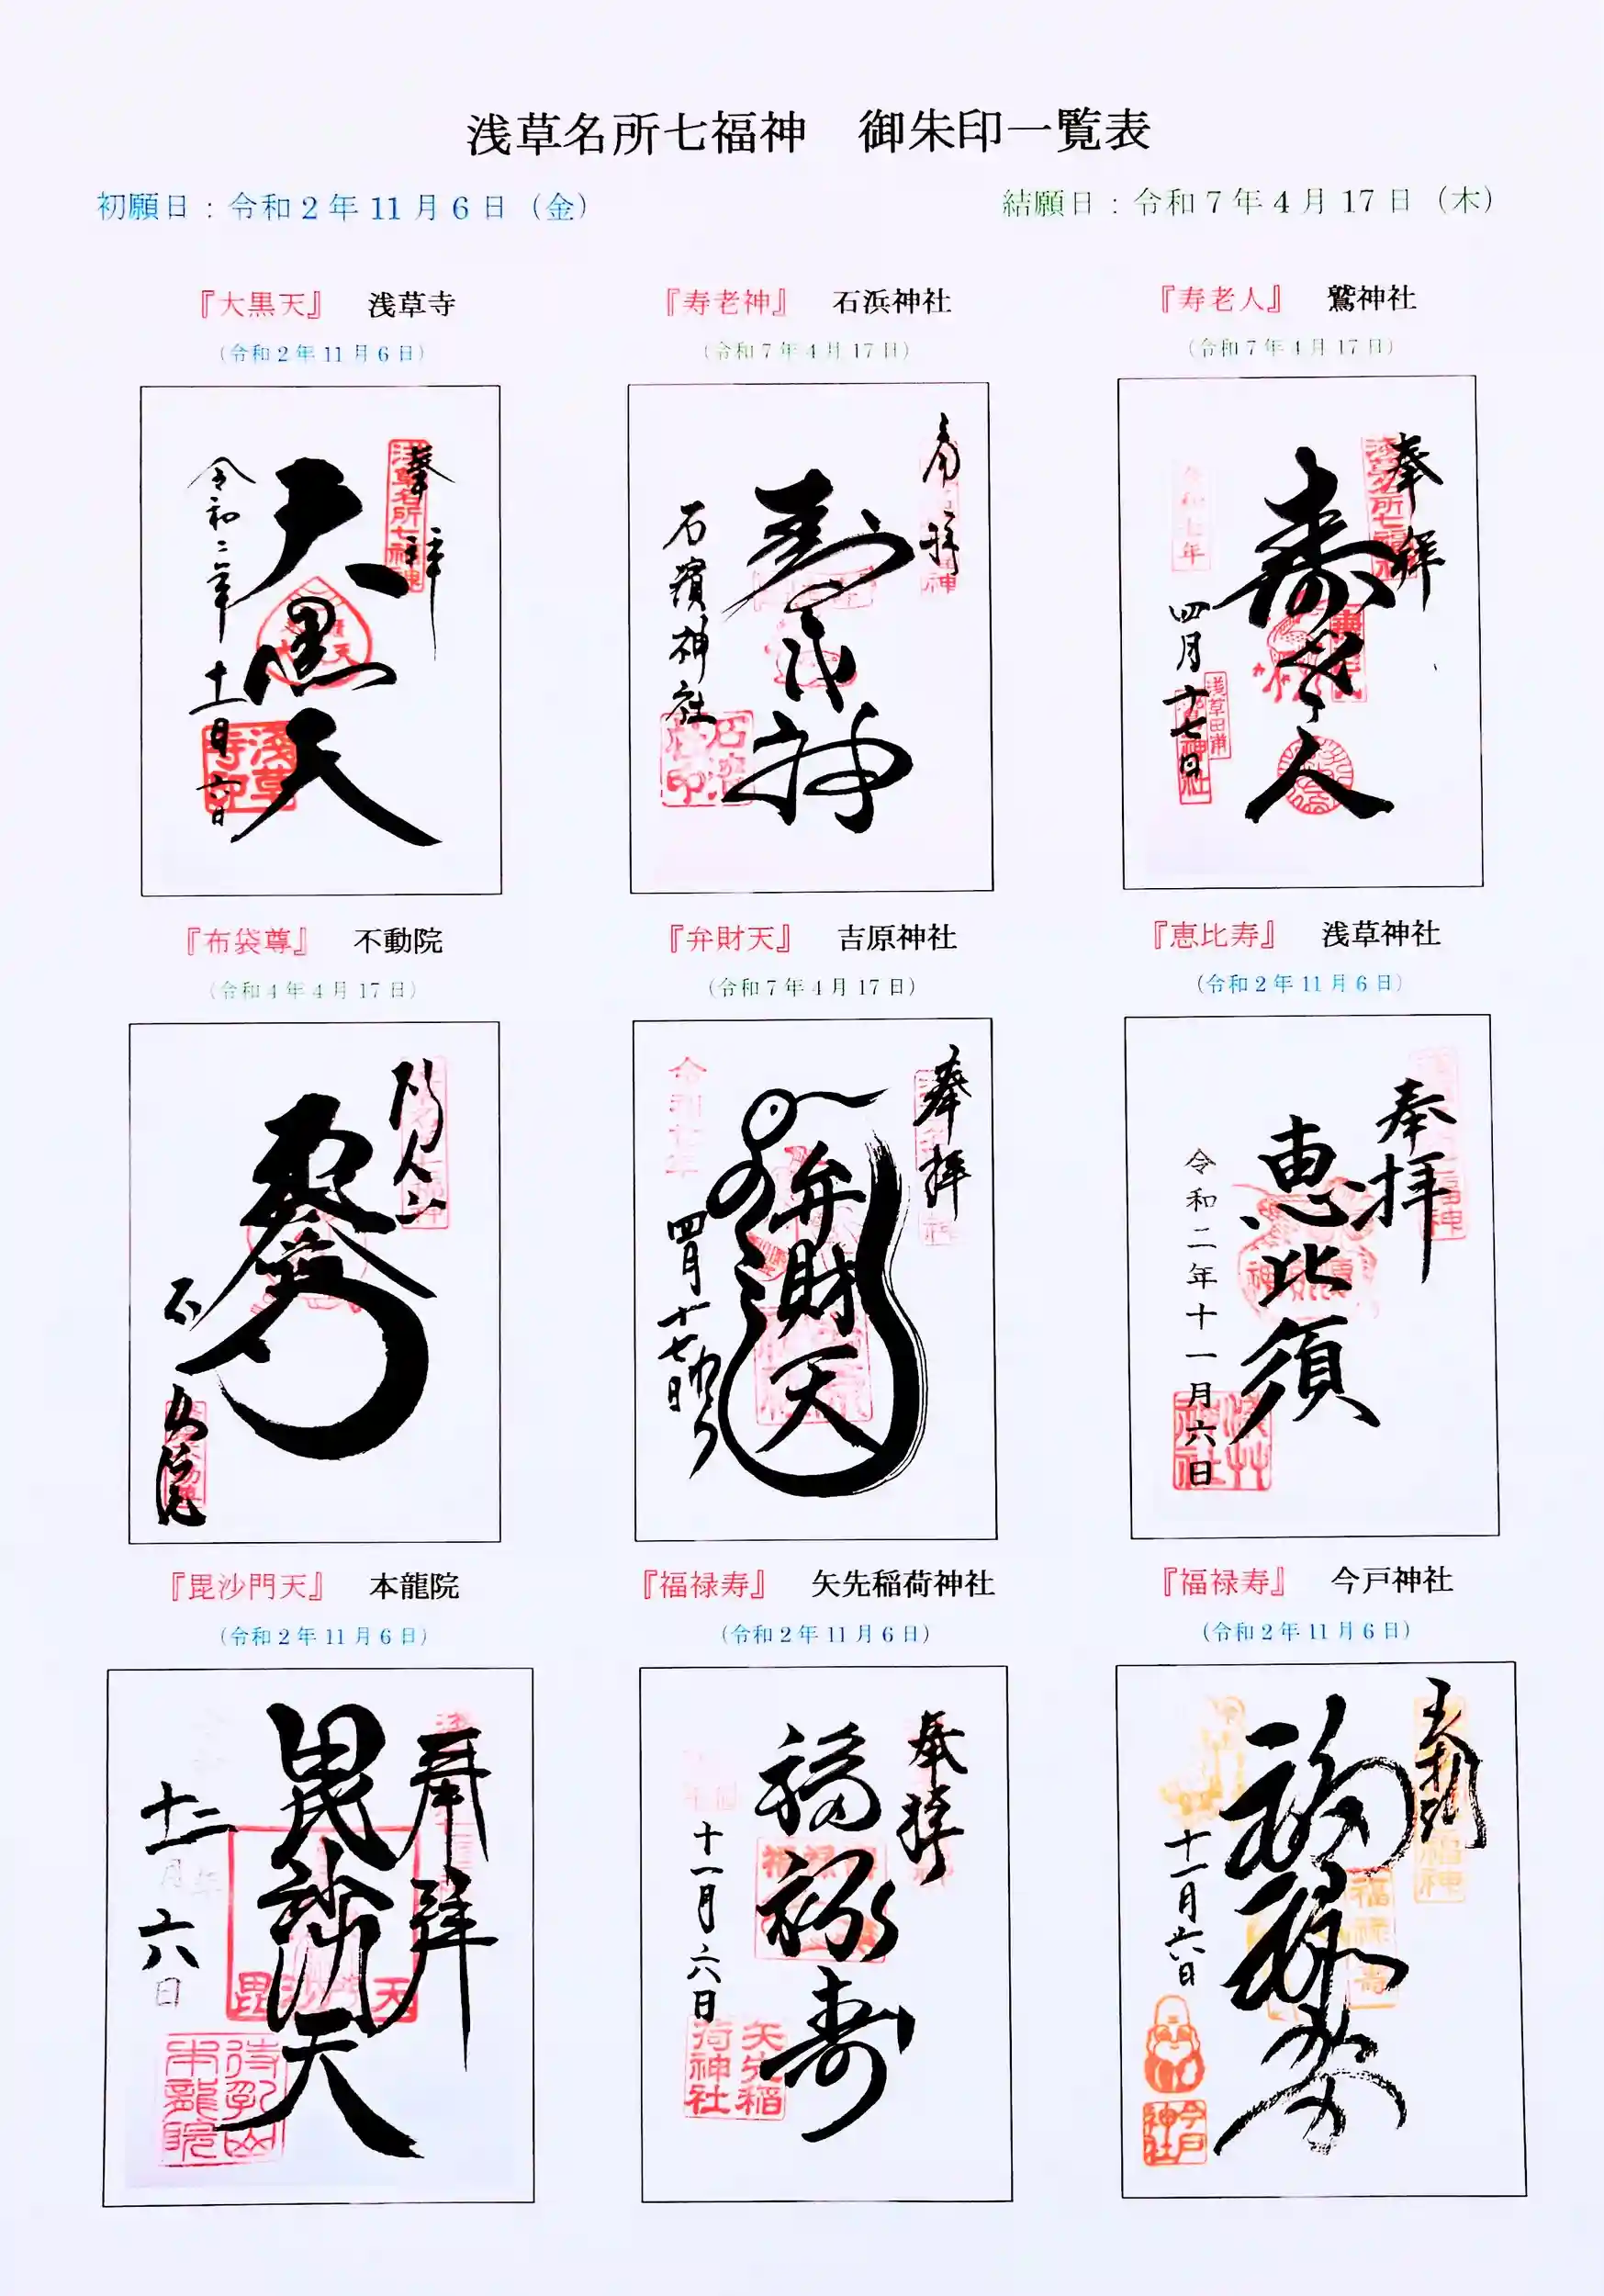 浅草名所七福神　御朱印一覧表
初願日：令和2年11月6日（金）
結願日：令和7年4月17日（木）
『大黒天』　浅草寺
（令和2年11月6日）
浅草名所七福神
奉拝
大黒天
令和二年十一月六日
浅草寺印
『寿老神』　石浜神社
（令和7年4月17日）
奉拝
寿老神
石濱神社
『寿老人』　鷲神社
（令和7年4月17日）
浅草名所七福神
奉拝
寿老人
令和七年
四月十七日
浅草田甫
『布袋尊』　不動院
（令和4年4月17日）
『弁財天』　吉原神社
（令和7年4月17日）
奉拝
弁財天
令和七年
四月十七日
『恵比寿』　浅草神社
（令和2年11月6日）
奉拝
恵比須
令和二年十一月六日
浅草神社
『毘沙門天』　本龍院
（令和2年11月6日）
奉拝
毘沙門天
十一月六日
待乳山本龍院
『福禄寿』　矢先稲荷神社
（令和2年11月6日）
奉拝
福禄寿
十一月六日
矢先稲荷神社
『福禄寿』　今戸神社
（令和2年11月6日）
奉拝
福禄寿
十一月六日
今戸神社